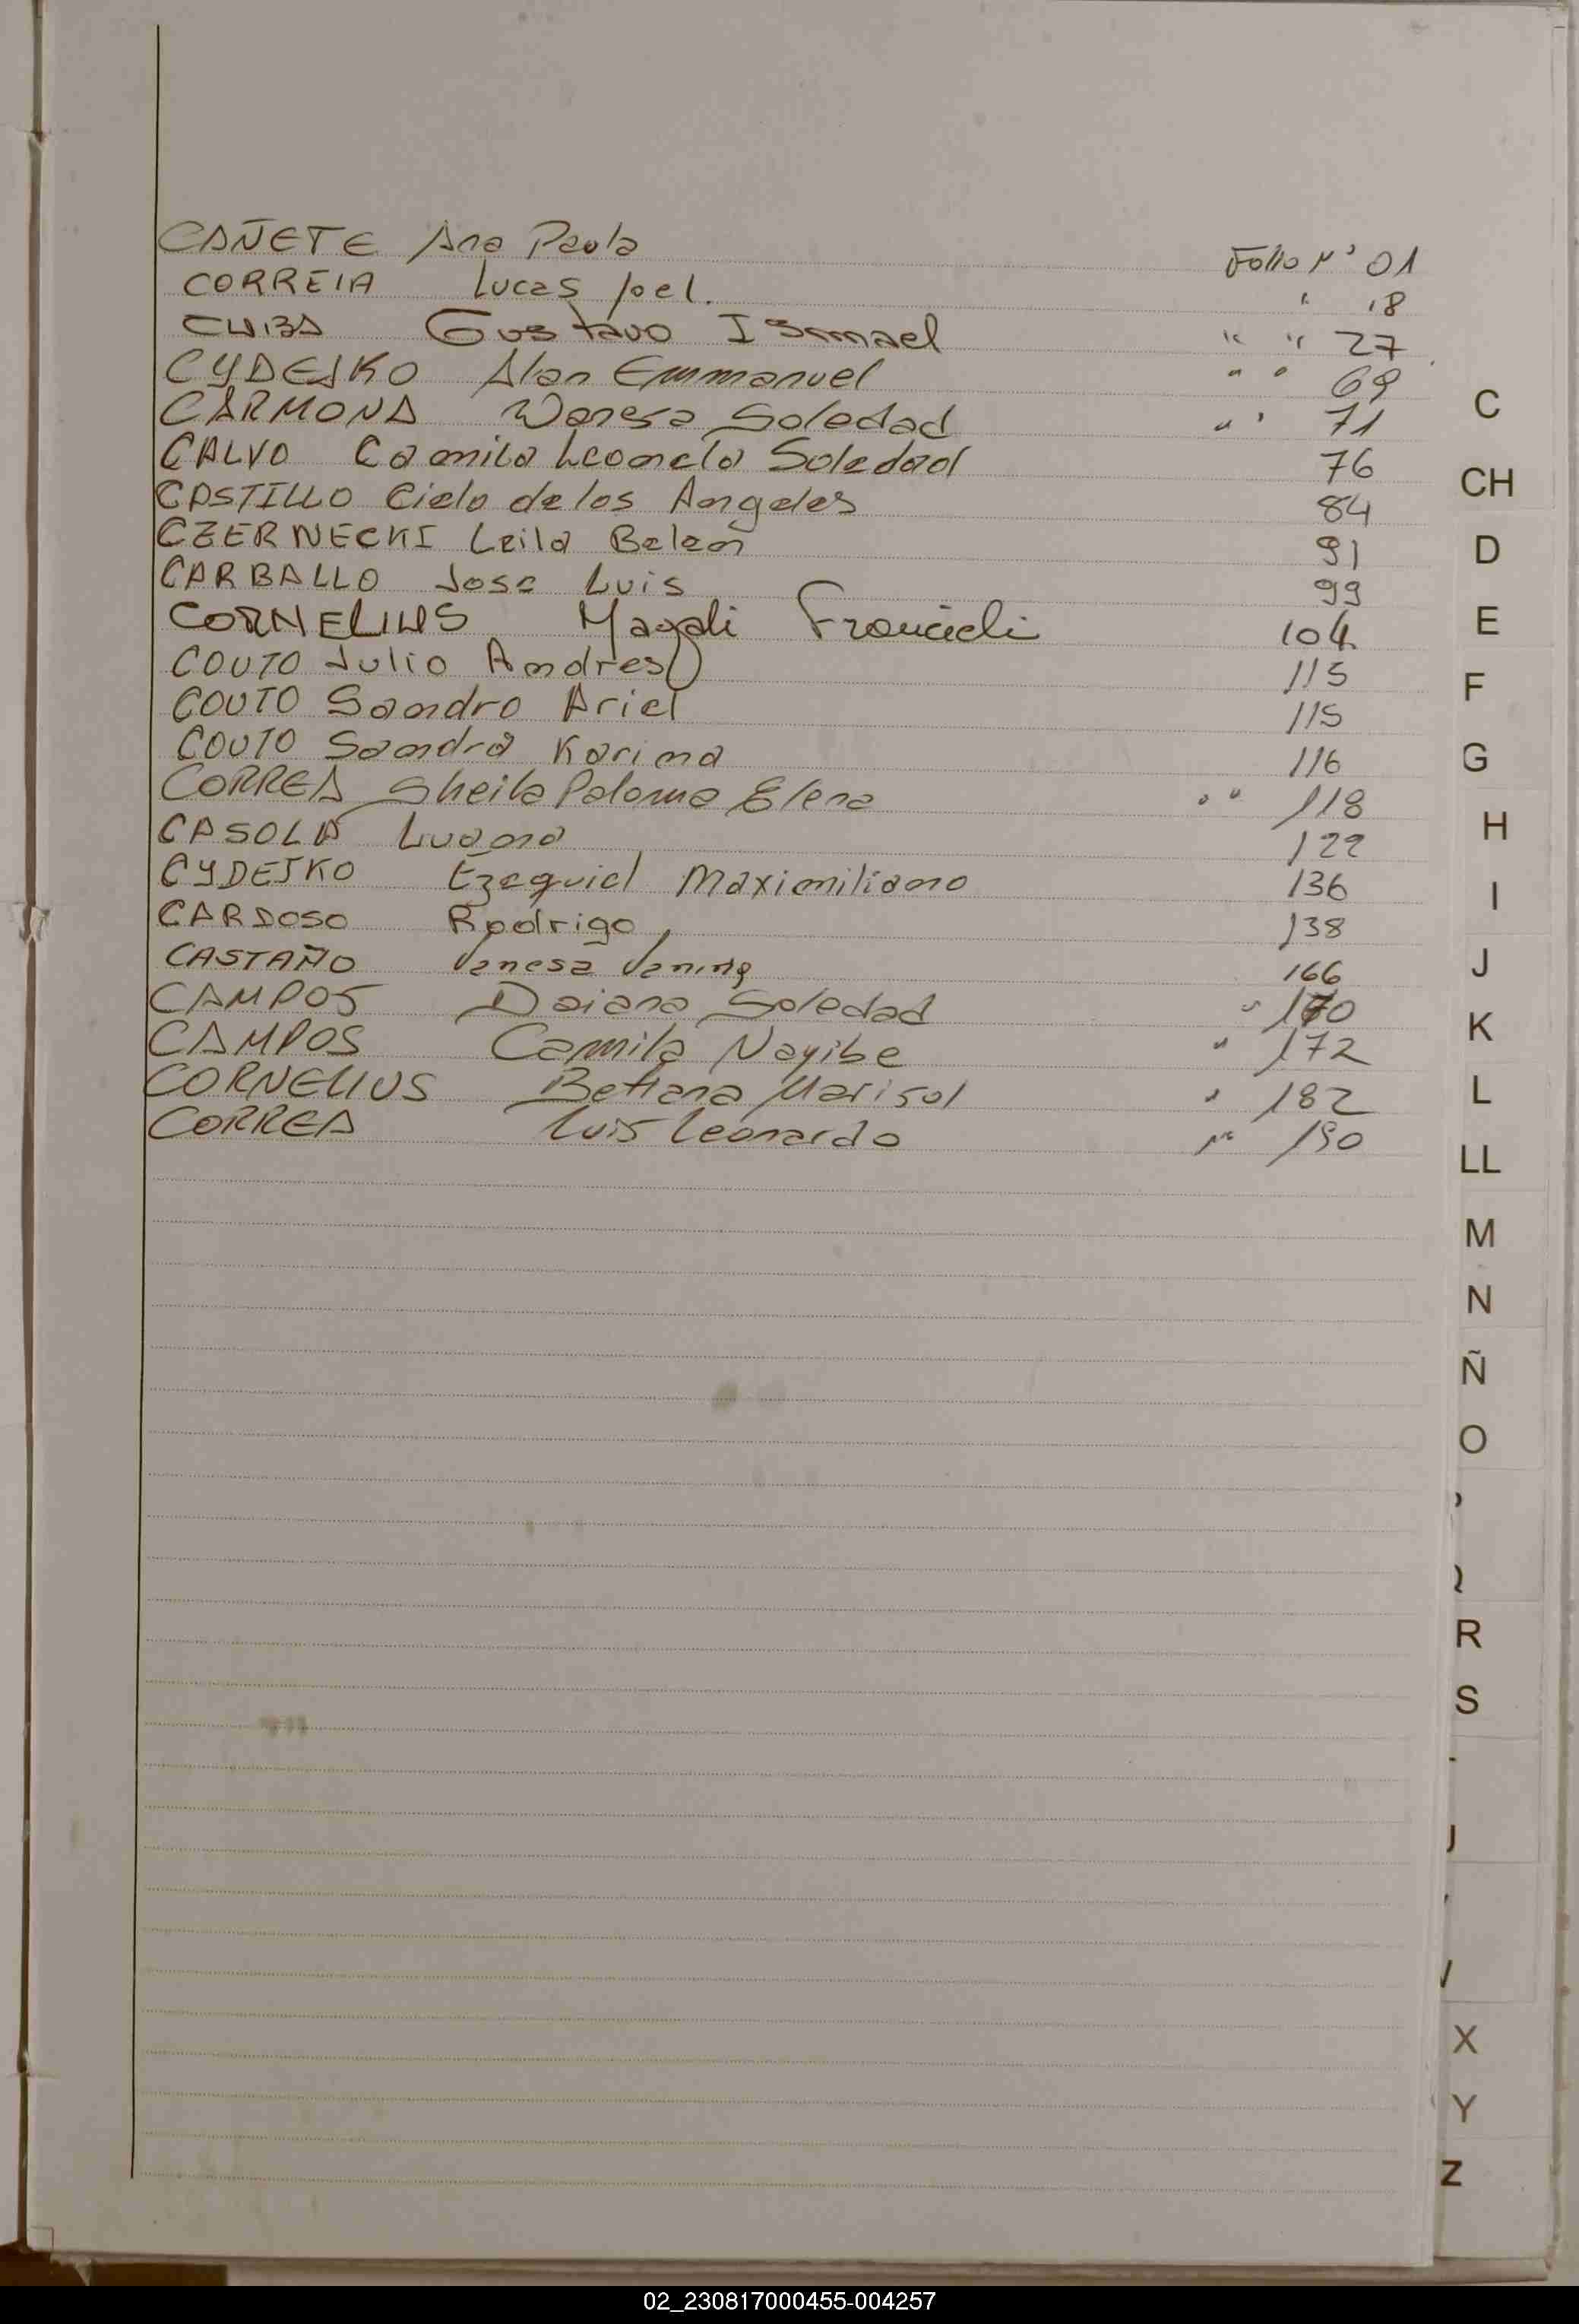 CAÑETE Ana Paola Folio Nº 01
CORREIA Lucas Joel. " 18
Gustavo Ismael " " 27
CYDEJKO Alan Emmanuel " " 69
CARMONA Wanesa Soledad " " 71
CALVO Camila Leonela Soledad 76
CASTILLO Cielo de los Angeles 84
CZERNECKI Leila Belen 91
CARBALLO Jose Luis 99
CORNELIUS Magali Francieli 104
COUTO Julio Andres 115
COUTO Sandro Ariel 115
COUTO Sandra Karina 116
CORREA Sheila Paloma Elena " " 118
CASOLA Luana 122
CYDEJKO Ezequiel Maximiliano 136
CARDOSO Rodrigo 138
CASTAÑO Vanesa Janina 166
CAMPOS Daiana Soledad " 170
CAMPOS Camila Nayibe " 172
CORNELIUS Betiana Marisol " 182
CORREA Luis Leonardo " 190
C
CH
D
E
F
G
H
I
J
K
L
LL
M
N
Ñ
O
R
S
X
Y
Z
02_230817000455-004257